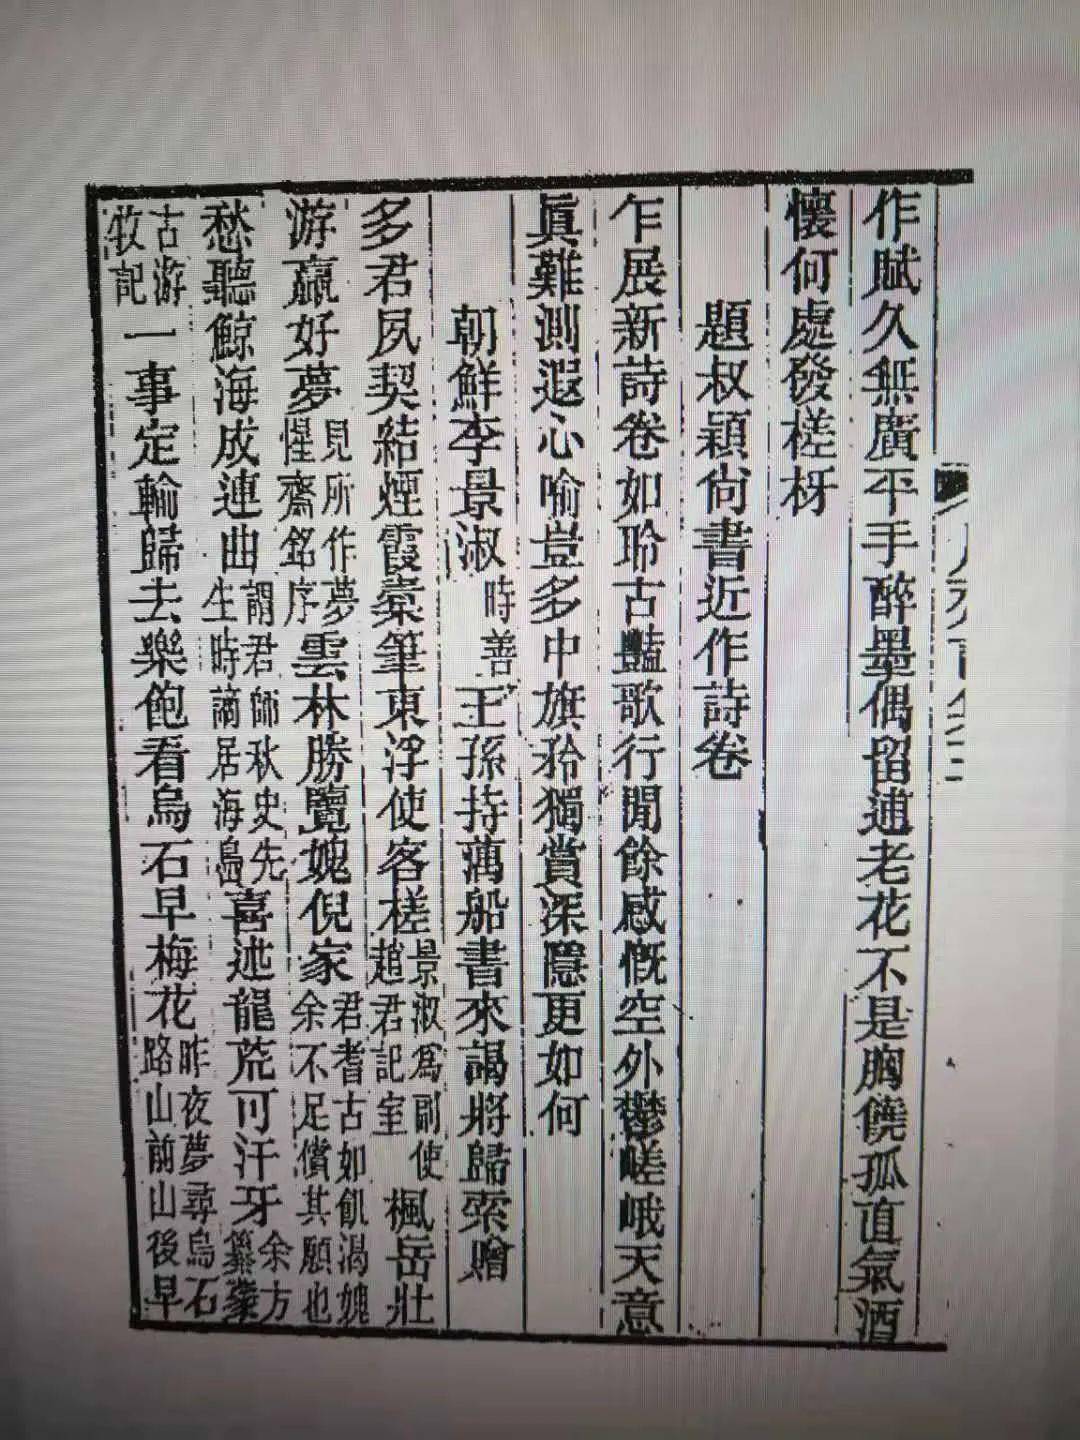 作賦久無廣平手醉墨偶留逋老花不是胸饒孤直氣酒
懷何處發槎枒
題叔穎尚書近作詩卷
乍展新詩卷如聆古豔歌行閒餘感慨空外鬱嵯峨天意
眞難測遐心喻豈多中旗矜獨賞深隱更如何
朝鮮李景淑時善王孫持蕅船書來謁將歸索贈
多君夙契結煙霞橐筆東浮使客槎景淑爲副使趙君記室楓岳壯
游贏好夢見所作夢惺齋銘序雲林勝覽媿倪家君耆古如飢渴媿余不足償其願也
愁聽鯨海成連曲謂君師秋史先生時謫居海島喜述龍荒可汗牙余方纂蒙
古游牧記一事定輸歸去樂飽看烏石早梅花昨夜夢尋烏石路山前山後早